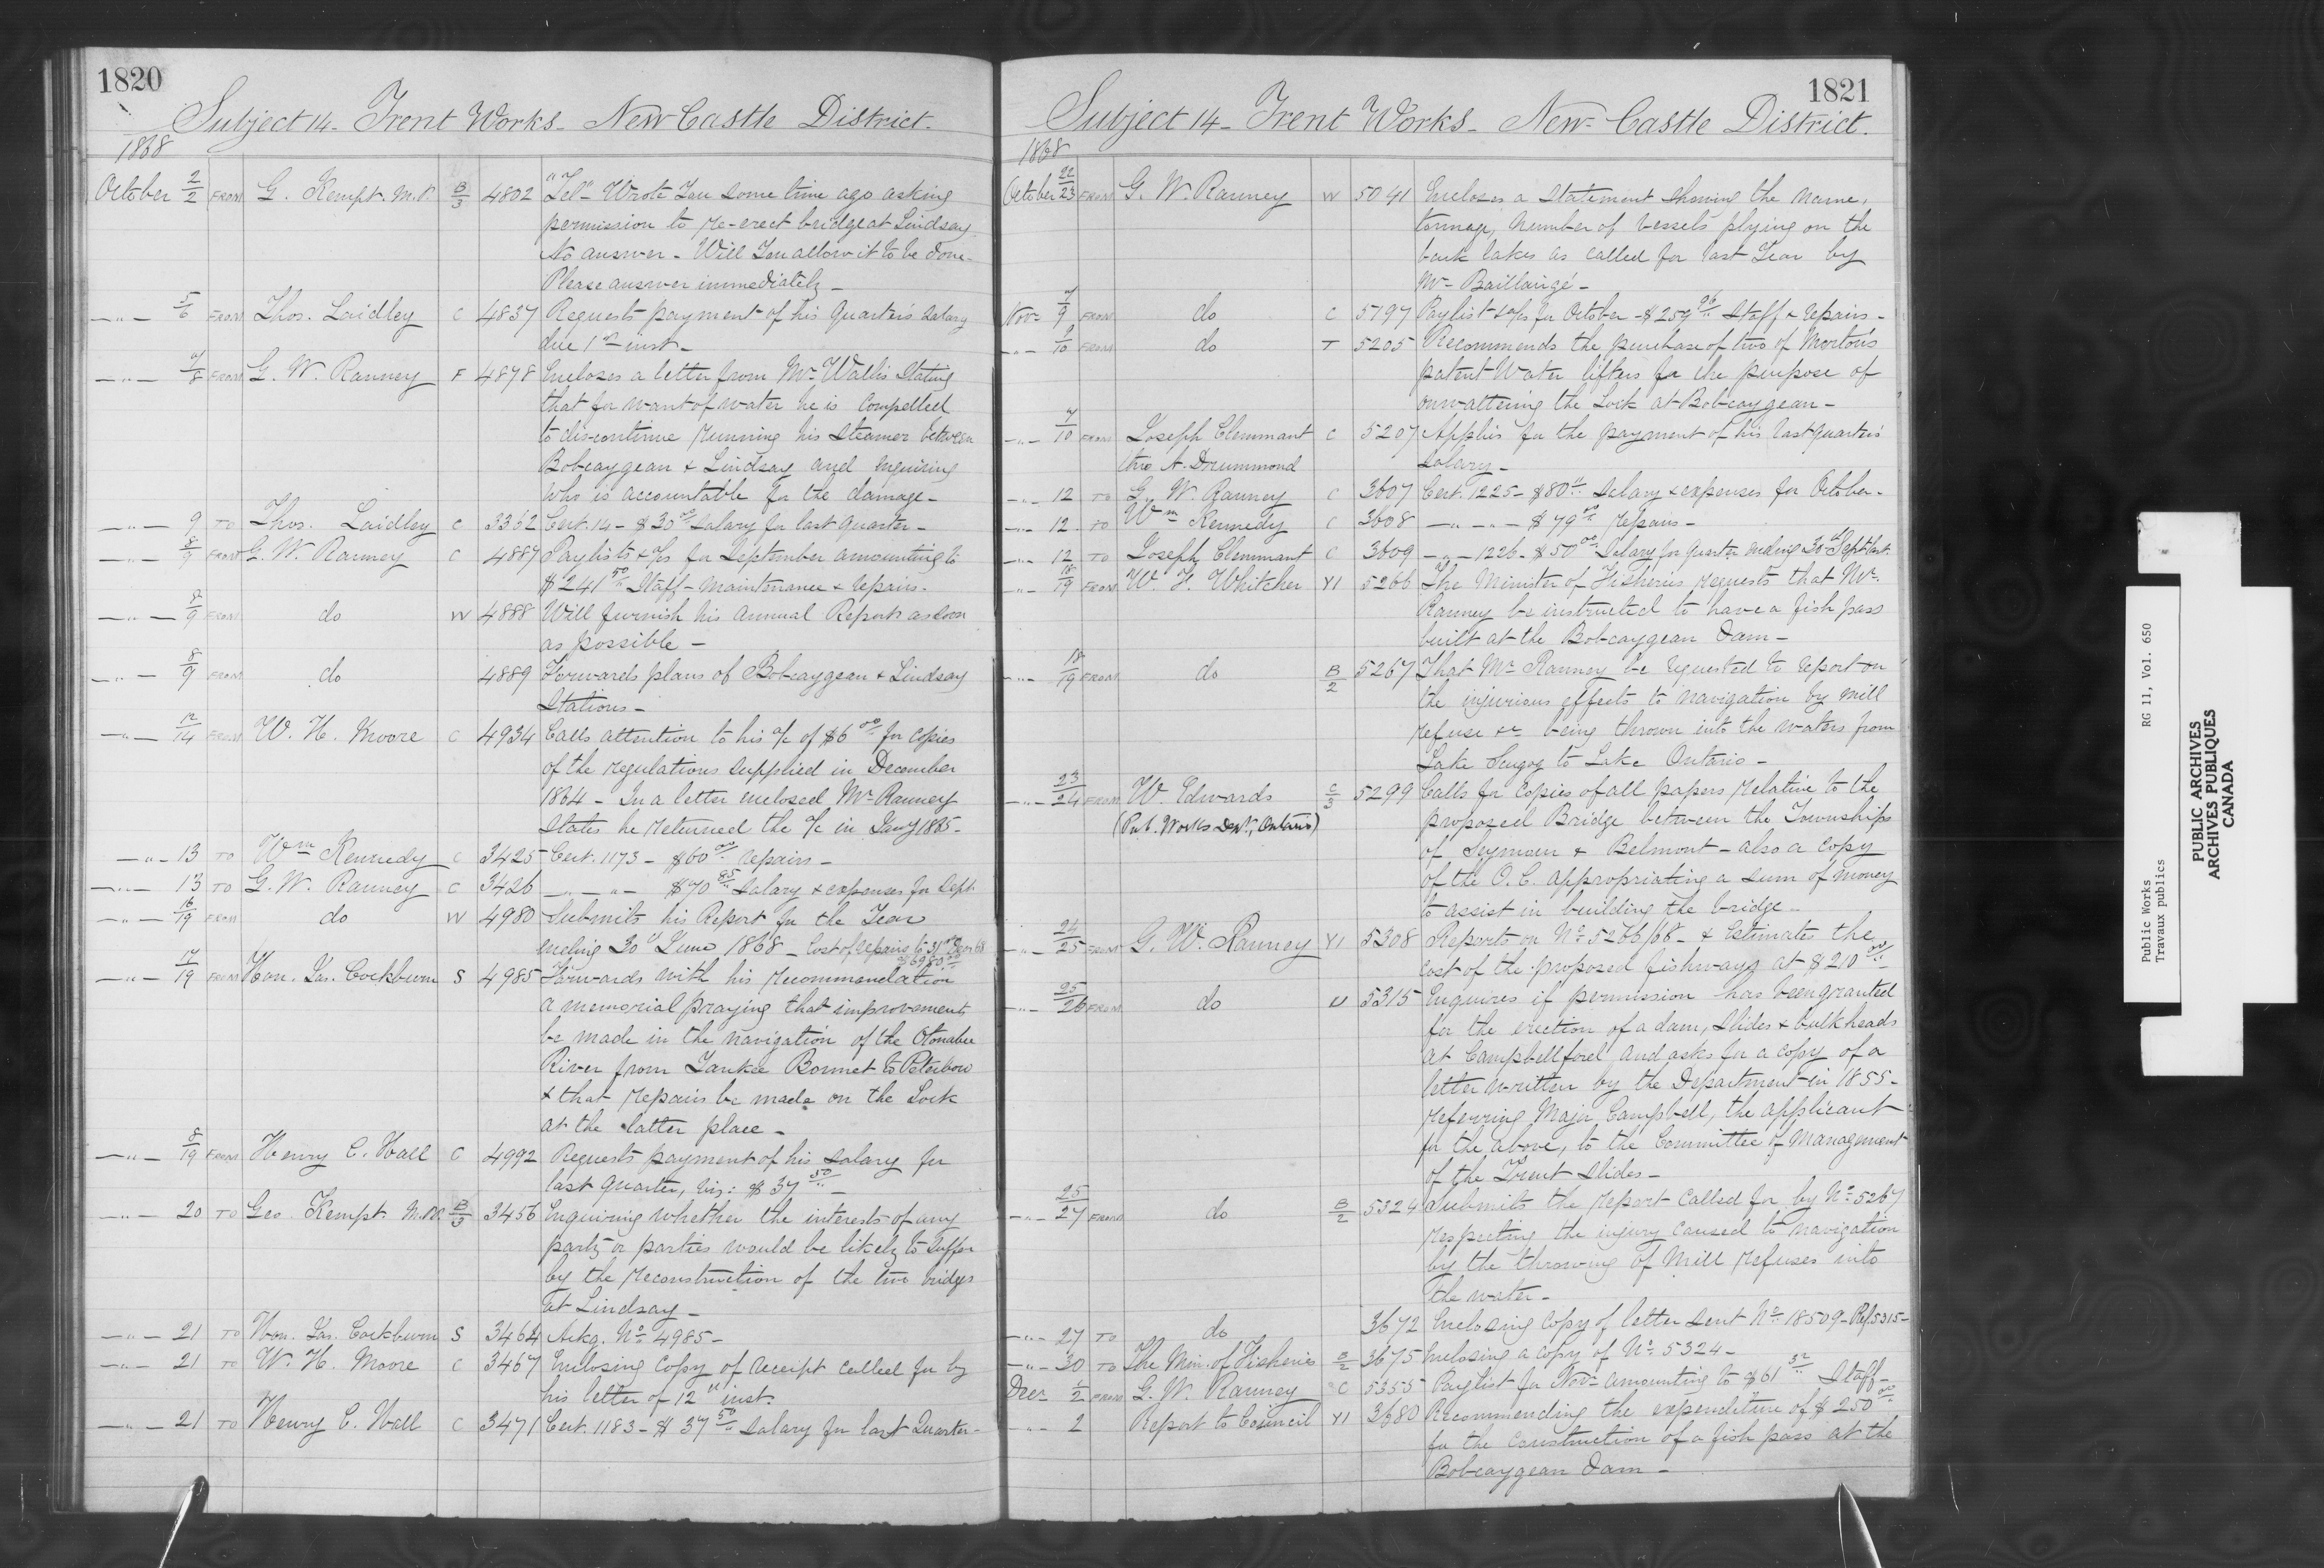 1820
Subject 14 - Trent Works - New Castle District.
1868
October 2/2 FROM G. Kempt. M.P. B/3 4802 "Tel" - Wrote You some time ago asking
permission to re-erect bridge at Lindsay
No answer - Will You allow it to be done -
Please answer immediately -
— " — 5/6 FROM Thos. Laidley C 4837 Requests payment of his Quarter's Salary
due 1st inst -
— " — 7/8 FROM G. W. Ranney F 4878 Encloses a letter from Mr Wallis stating
that for want of water he is compelled
to discontinue running his steamer between
Bobcaygean & Lindsay and inquiring
who is accountable for the damage -
— " — 9 TO Thos. Laidley C 3362 Cert. 14 - $30 00/ Salary for last quarter -
— " — 8/9 FROM G. W. Ranney C 4887 Paylists & a/cs for September amounting to
$241 50/ Staff - Maintenance & repairs -
— " — 8/9 FROM do W 4888 Will furnish his annual Report as soon
as possible -
— " — 8/9 FROM do 4889 Forwards plans of Bobcaygean & Lindsay
Stations -
— " — 12/14 FROM W. H. Moore C 4934 Calls attention to his a/c of $6 00/ for copies
of the regulations supplied in December
1864 - In a letter enclosed Mr Ranney
states he returned the a/c in Jany 1865 -
— " — 13 TO Wm Kennedy C 3425 Cert. 1173 - $60 00/ repairs -
— " — 13 TO G. W. Ranney C 3426 — " — " — $70 85/ Salary & expenses for Sept.
— " — 16/19 FROM do W 4980 Submits his Report for the Year
ending 30th June 1868 - Cost of repairs to 31st Decr 68
$6980 00/
— " — 17/19 FROM Hon. Jas. Cockburn S 4985 Forwards with his recommendation
a memorial praying that improvements
be made in the navigation of the Otonabee
River from Yankee Bonnet to Peterboro
& that repairs be made on the Lock
at the latter place -
— " — 8/19 FROM Henry C. Wall C 4992 Requests payment of his salary for
last quarter, viz: $37 50/ -
— " — 20 TO Geo. Kempt. M.P. B/3 3456 Enquiring whether the interests of any
party or parties would be likely to suffer
by the reconstruction of the two bridges
at Lindsay -
— " — 21 TO Hon. Jas. Cockburn S 3464 Ackg. No 4985 -
— " — 21 TO W. H. Moore C 3467 Enclosing Copy of receipt called for by
his letter of 12th inst.
— " — 21 TO Henry C. Wall C 3471 Cert. 1183 - $37 50/ salary for last Quarter -
1821
Subject 14 - Trent Works - New-Castle District.
1868
October 22/23 FROM G. W. Ranney W 5041 Encloses a Statement showing the name,
tonnage, number of vessels plying on the
back lakes as called for last Year by
Mr Baillairgé -
Nov. 7/9 FROM do C 5197 Paylist & a/cs for October - $259 96/ Staff & repairs -
— " — 9/10 FROM do T 5205 Recommends the purchase of two of Morton's
patent Water lifters for the purpose of
unwattering the Lock at Bobcaygean -
— " — 7/10 FROM Joseph Clemmant C 5207 Applies for the payment of his last quarters'
thro A. Drummond salary -
— " — 12 TO G. W. Ranney C 3607 Cert. 1225 - $80 11/ Salary & expenses for October -
— " — 12 TO Wm Kennedy C 3608 — " — " — $79 00/ repairs -
— " — 12 TO Joseph Clemmant C 3609 — " — 1226 - $50 00/ Salary for quarter ending 30th Sept last.
— " — 18/19 FROM W. F. Whitcher YI 5266 The Minister of Fisheries requests that Mr.
Ranney be instructed to have a fish pass
built at the Bobcaygean Dam -
— " — 18/19 FROM do B/2 5267 That Mr Ranney be requested to report on
the injurious effects to navigation by mill
refuse &c being thrown into the waters from
Lake Scugog to Lake Ontario -
— " — 23/24 FROM W. Edwards C/3 5299 Calls for copies of all papers relative to the
(Pub. Works Dept, Ontario) proposed Bridge between the Townships
of Seymour & Belmont - also a copy
of the O.C. appropriating a sum of money
to assist in building the bridge -
— " — 24/25 FROM G. W. Ranney YI 5308 Reports on No 5266/68 - & Estimates the
cost of the proposed fishways at $210 00/ -
— " — 25/26 FROM do U 5315 Enquires if permission has been granted
for the erection of a dam, slides & bulkheads
at Campbellford, and asks for a copy of a
letter written by the Department in 1855 -
referring Major Campbell, the applicant
for the above, to the Committee of Management
of the Trent Slides -
— " — 25/27 FROM do B/2 5324 Submits the report called for by No 5267
respecting the injury caused to navigation
by the throwing of Mill refuses into
the water -
— " — 27 TO do 3672 Enclosing Copy of letter sent No 18509 - Ref. 5315 -
— " — 30 TO The Min. of Fisheries B/2 3675 Enclosing a copy of No 5324 -
Decr 1/2 FROM G. W. Ranney C 5355 Paylist for Novr amounting to $61 32/ Staff -
— " — 2 Report to Council YI 3680 Recommending the expenditure of $250 00/
for the construction of a fish pass at the
Bobcaygean Dam -
Public Works RG 11, Vol. 650
Travaux publics
PUBLIC ARCHIVES
ARCHIVES PUBLIQUES
CANADA